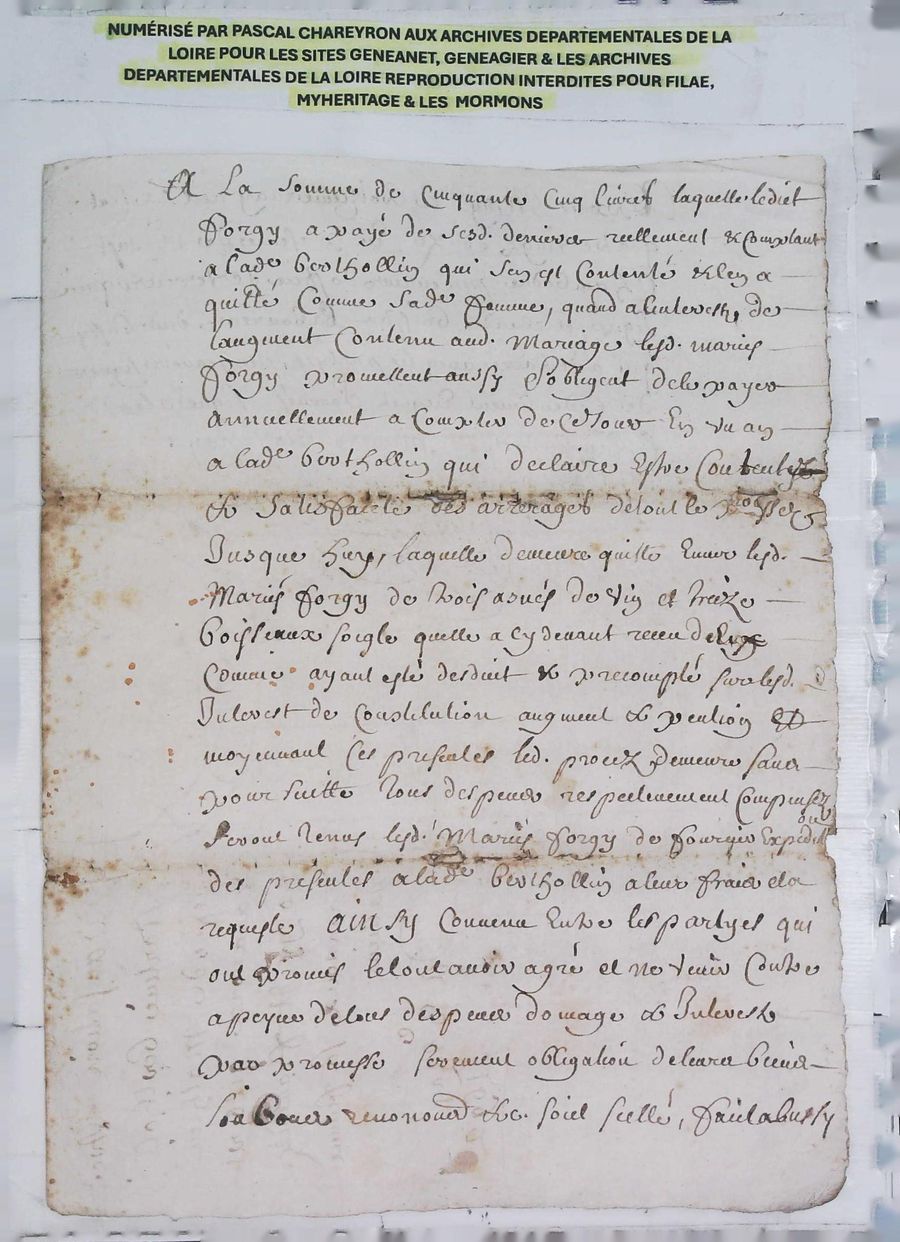 NUMÉRISÉ PAR PASCAL CHAREYRON AUX ARCHIVES DEPARTEMENTALES DE LA
LOIRE POUR LES SITES GENEANET, GENEAGIER & LES ARCHIVES
DEPARTEMENTALES DE LA LOIRE REPRODUCTION INTERDITES POUR FILAE,
MYHERITAGE & LES MORMONS
A La somme de Cinquante Cinq livres laquelle ledict
forgy a payé de sesd. deniers reellement & Comptant
a lade berthollin qui sen est Contenté & len a
quitté Comme sade femme, quand a linterest, de
laugment Contenu aud. Mariage lesd. mariés
forgy promettent aussy & sobligent de le payer
annuellement a Compter de Ce Jour En un an
a lade berthollin qui declaire Estre Contente
& satisfaicte des arrerages de tout le
Jusque huy, laquelle demeure quitte Enver lesd.
Mariés forgy de trois asnés de vin et treize
boisseaux soigle quelle a Cy devant receu
Comme ayant esté desduit & precompté sur lesd.
Interest de Constitution augment & pention
moyennant Ces presentes led. procez demeure sans
poursuitte tous despens respectivement Compensez
seront tenus lesd. Mariés forgy de fournir Expedition
des presentes a lade berthollin a leur frais et a
requeste ainsy Convenu Entre les partyes qui
ont promis le tout avoir agré et ne venir Contre
a peyne de tous despens domage & Interest
par promesse serement obligation de leurs biens
renonond &c. soict scellé, faict a bussy